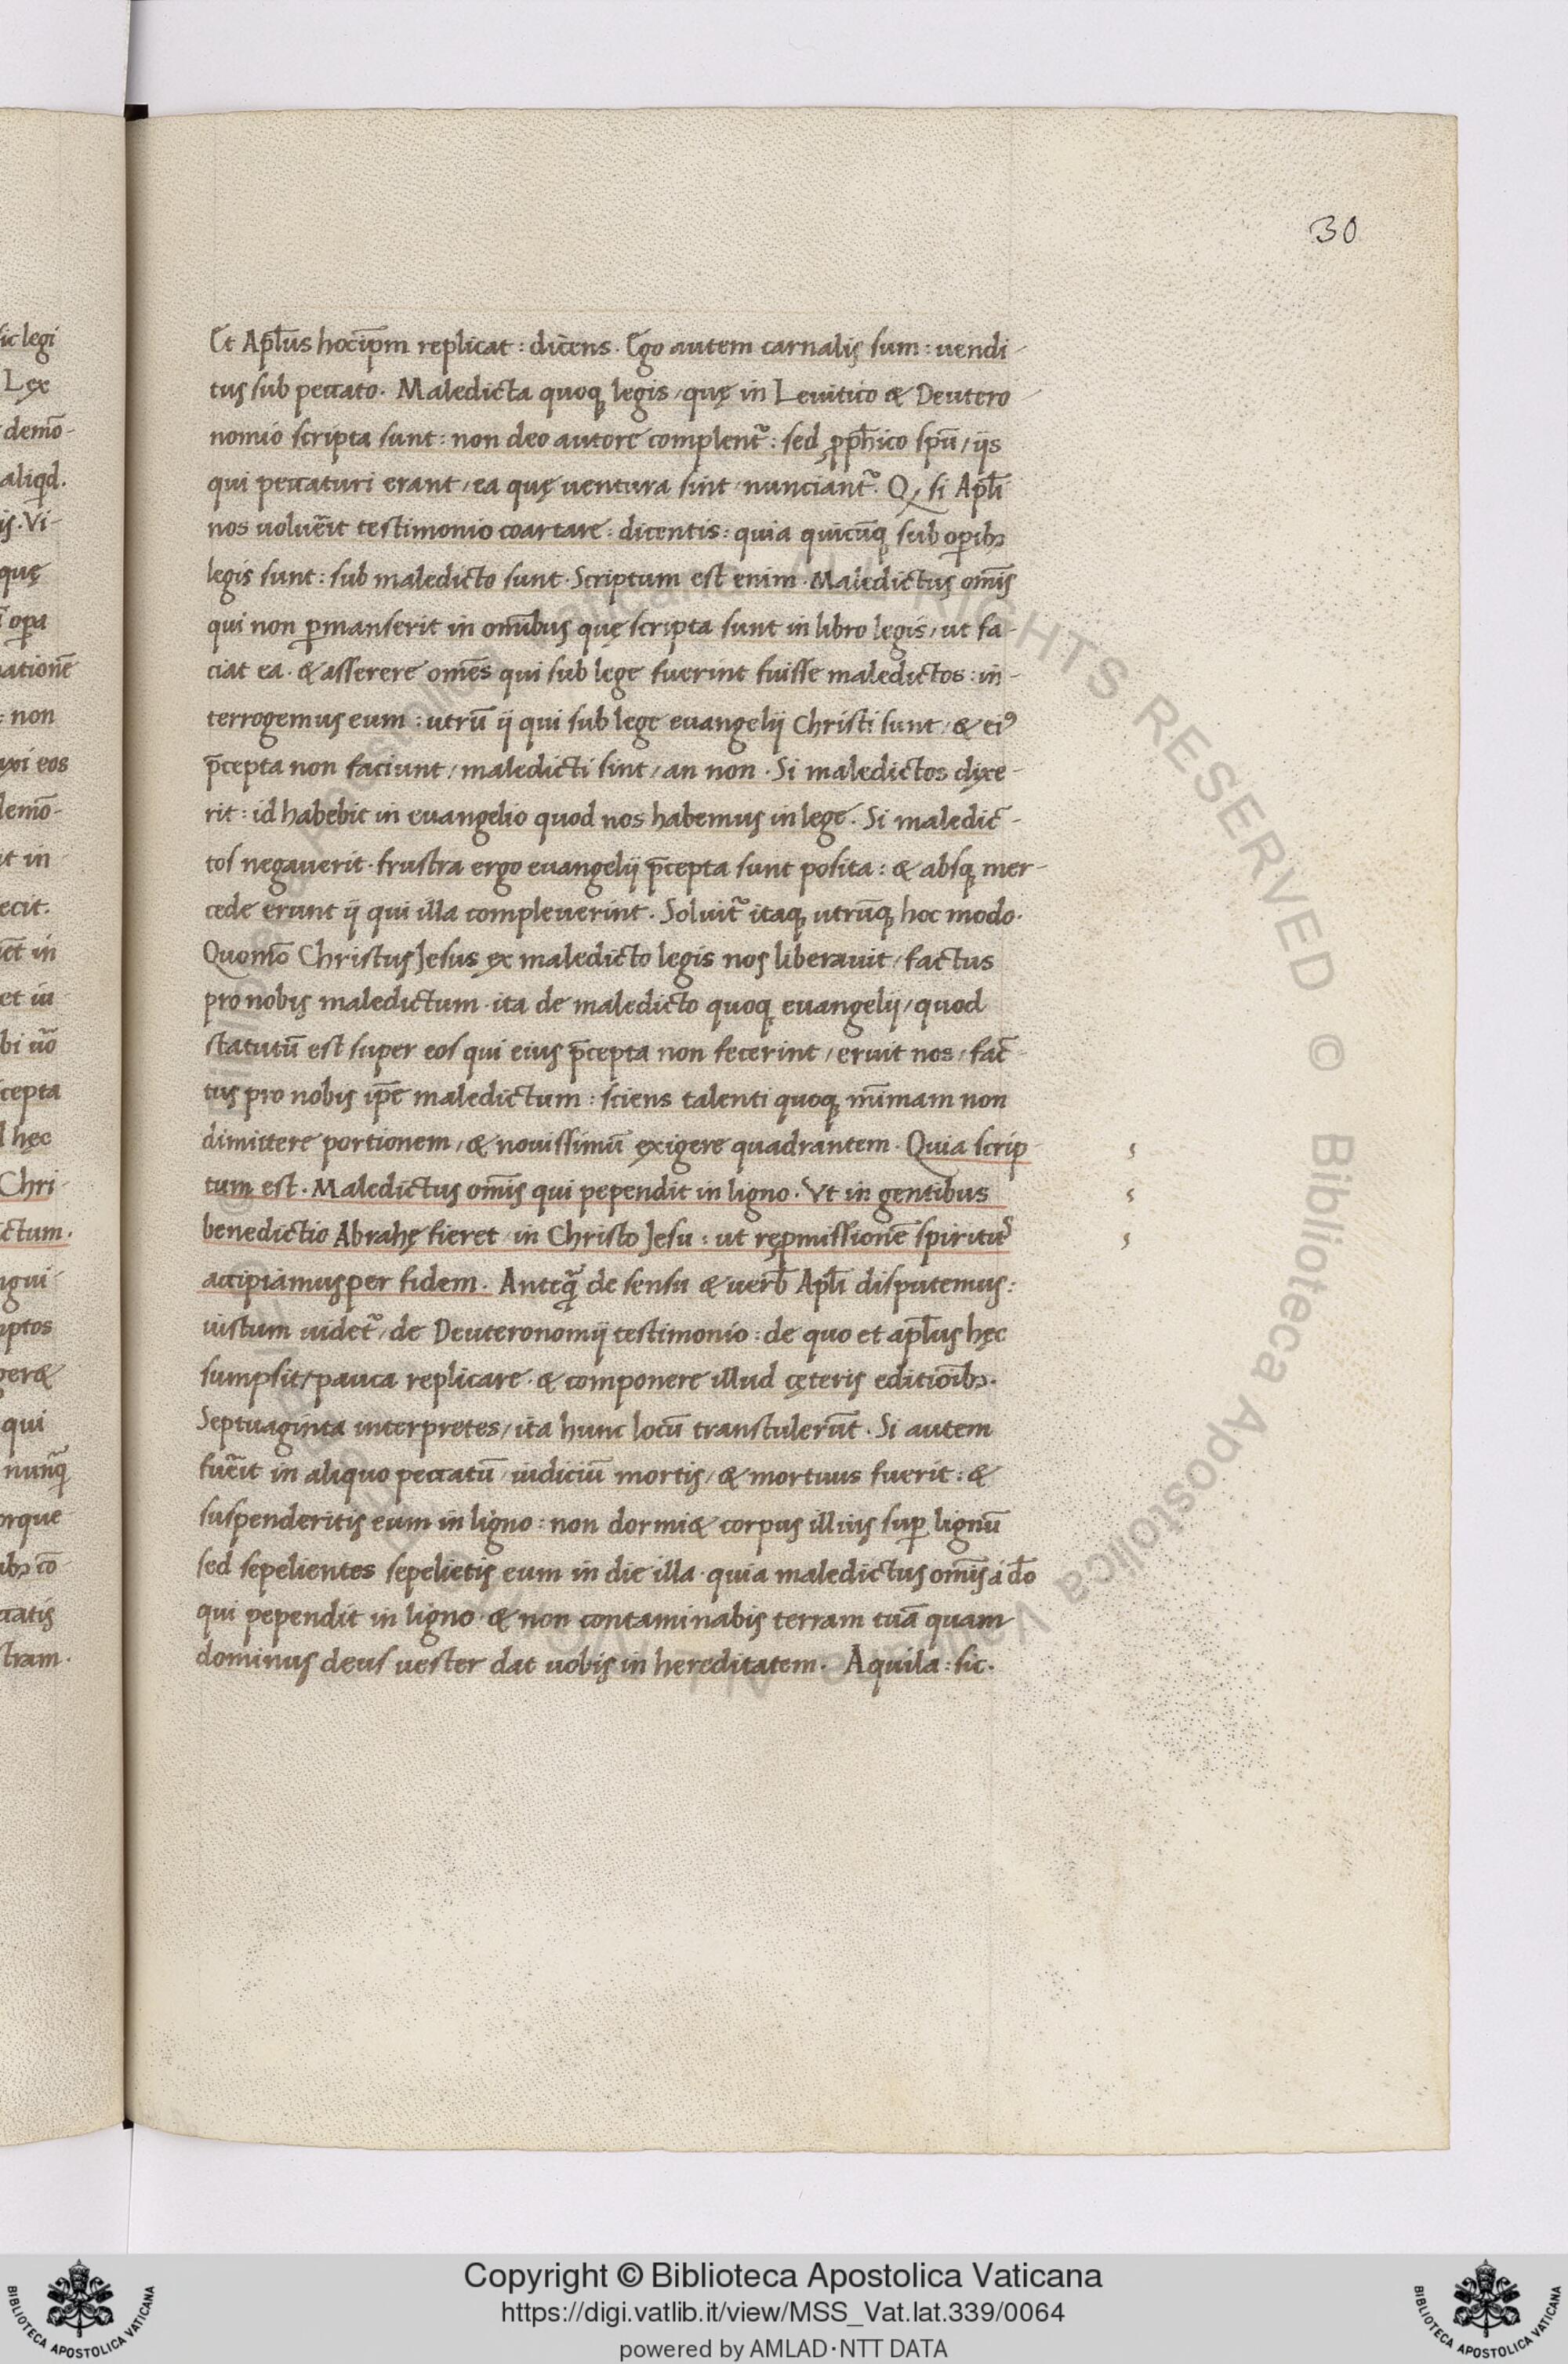 30
Et Apl̄us hoc ip̄m replicat : dicens . Ego autem carnalis sum : uendi-
tus sub peccato . Maledicta quoq legis / quę in Leuitico & Deutero-
nomio scripta sunt : non deo autore complent᷑ : sed ꝓph̄ico spū / ijs
qui peccaturi erant / ea quę uentura sint / nunciant᷑ . Q, si Apl̄i
nos uoluēit testimonio coartare : dicentis : quia quicūq sub oꝑibꝫ
legis sunt : sub maledicto sunt . Scriptum est enim . Maledictus om̄is
qui non ꝑmanserit in om̄ibus quę scripta sunt in libro legis / ut fa-
ciat ea . & asserere om̄es qui sub lege fuerint fuisse maledictos : in-
terrogemus eum : utrū ij qui sub lege euangelij Christi sunt / & eiꝰ
p̄cepta non faciunt / maledicti sint / an non . Si maledictos dixe-
rit : id habebit in euangelio quod nos habemus in lege . Si maledic-
tos negauerit . frustra ergo euangelij p̄cepta sunt posita : & absq mer-
cede erunt ij qui illa compleuerint . Soluit᷑ itaq utrūq hoc modo .
Quom̄o Christus Jesus ex maledicto legis nos liberauit / factus
pro nobis maledictum . ita de maledicto quoq euangelij / quod
statutū est super eos qui eius p̄cepta non fecerint / eruit nos / fac-
tus pro nobis ip̄e maledictum : sciens talenti quoq mīmam non
dimittere portionem / & nouissimū exigere quadrantem . Quia scrip-
tum est . Maledictus om̄is qui pependit in ligno . Vt in gentibus
benedictio Abrahę fieret / in Christo Jesu : ut reꝓmissionē spiritus
accipiamus per fidem . Anteq̄ de sensu & uerb̄ Apl̄i disputemus :
iustum uidet᷑ / de Deuteronomij testimonio : de quo et apl̄us hęc
sumpsit / pauca replicare . & componere illud cęteris editiōibꝫ .
Septuaginta interpretes / ita hunc locū transtulerūt . Si autem
fuēit in aliquo peccatū / iudiciū mortis / & mortuus fuerit : &
suspenderitis eum in ligno : non dormi& corpus illius suꝑ lignū
sed sepelientes sepelietis eum in die illa . quia maledictus om̄is á dō
qui pependit in ligno . & non contaminabis terram tuā quam
dominus deus uester dat uobis in hereditatem . Aquila : sic .
Copyright © Biblioteca Apostolica Vaticana
https://digi.vatlib.it/view/MSS_Vat.lat.339/0064
powered by AMLAD·NTT DATA